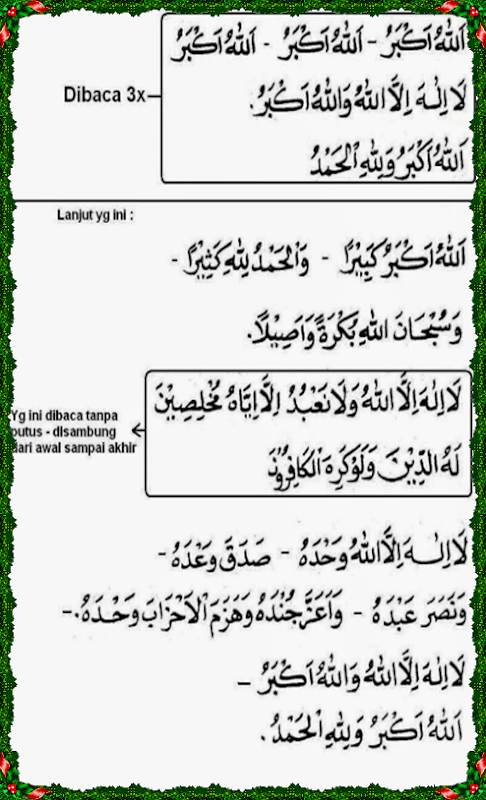 اَللهُ اَكْبَرُ - اَللهُ اَكْبَرُ - اَللهُ اَكْبَرُ
Dibaca 3x
لَا اِلٰهَ اِلَّا اللهُ وَاللهُ اَكْبَرُ.
اَللهُ اَكْبَرُ وَلِلّٰهِ الْحَمْدُ
Lanjut yg ini :
اَللهُ اَكْبَرُ كَبِيْرًا - وَالْحَمْدُ لِلّٰهِ كَثِيْرًا -
وَسُبْحَانَ اللهِ بُكْرَةً وَاَصِيْلًا.
لَا اِلٰهَ اِلَّا اللهُ وَلَا نَعْبُدُ اِلَّا اِيَّاهُ مُخْلِصِيْنَ
لَهُ الدِّيْنَ وَلَوْكَرِهَ الْكَافِرُوْنَ
Yg ini dibaca tanpa
putus - disambung
dari awal sampai akhir
لَا اِلٰهَ اِلَّا اللهُ وَحْدَهُ - صَدَقَ وَعْدَهُ -
وَنَصَرَ عَبْدَهُ - وَاَعَزَّ جُنْدَهُ وَهَزَمَ الْاَحْزَابَ وَحْدَهُ.-
لَا اِلٰهَ اِلَّا اللهُ وَاللهُ اَكْبَرُ -
اَللهُ اَكْبَرُ وَلِلّٰهِ الْحَمْدُ.